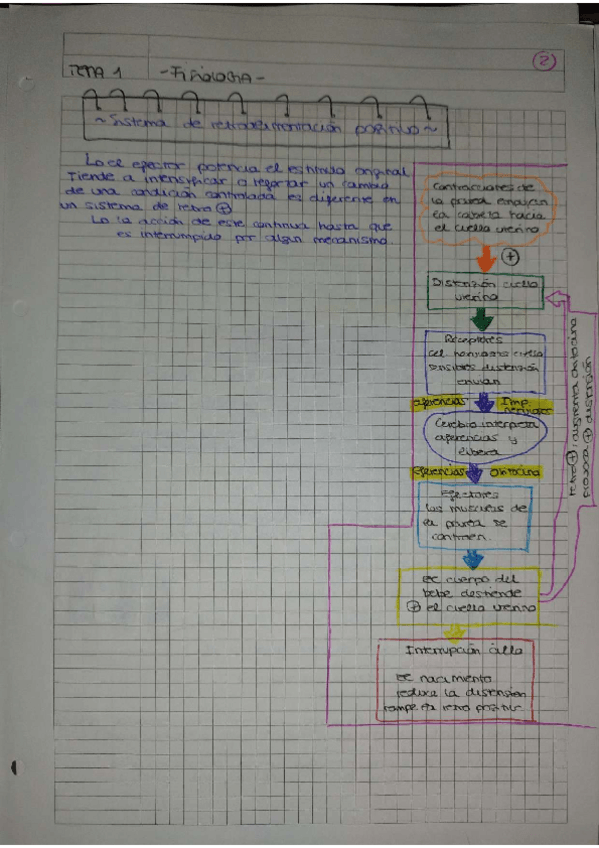 2
TEMA 1 -FISIOLOGÍA-
~Sistema de retroalimentación positivo~
Lo el efector potencia el estímulo original
Tiende a intensificar o reportar un cambio
de una condición controlada es diferente en
un sistema de retro ⊕
Lo la acción de este continua hasta que
es interrumpido por algún mecanismo.
Contracciones de
la pared empujan
la cabeza hacia
el cuello uterino
⊕
Distensión cuello
uterino
Receptores
cel nerviosas cuello
sensibles distensión
envían
aferencias Imp. nerviosos
Cerebro interpreta
aferencias y
libera
Eferencias oxitocina
Efectores
Los músculos de
la pared se
contraen.
El cuerpo del
bebe destiende
⊕ el cuello uterino
retro ⊕: aumenta oxitocina
provoca ⊕ distensión
Interrupción ciclo
El nacimiento
reduce la distension
rompe la retro positivo.